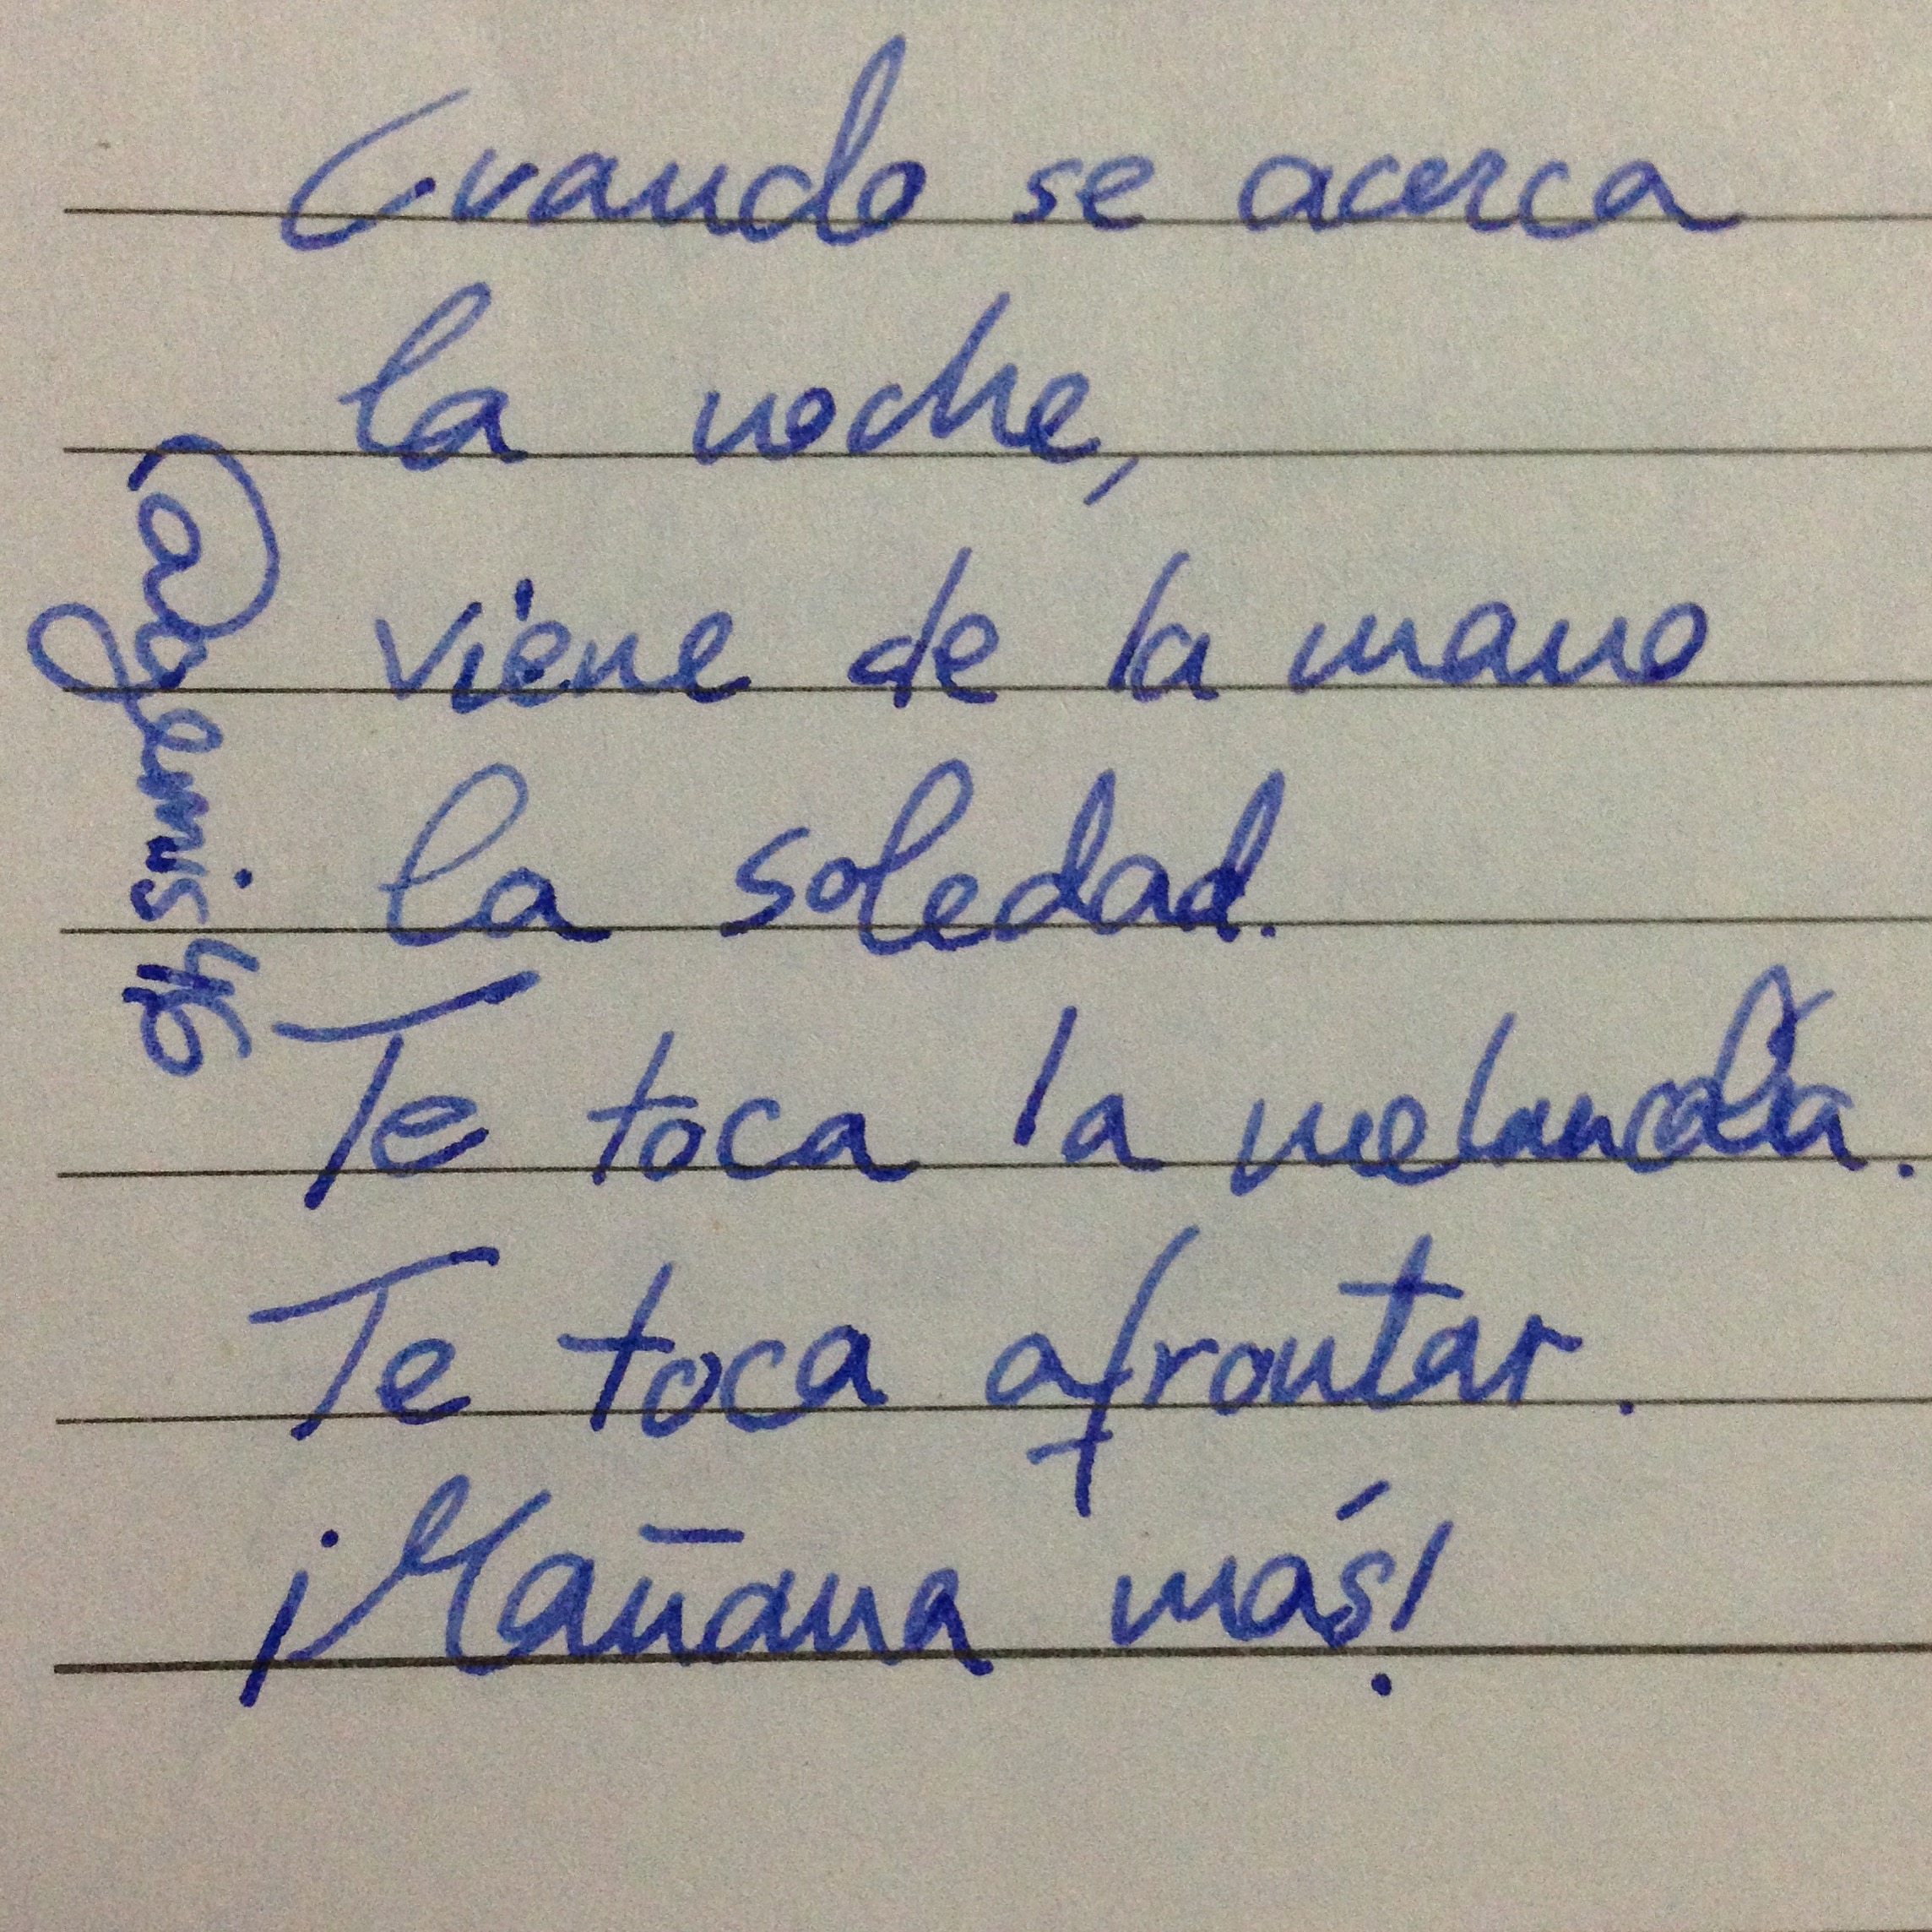 Cuando se acerca
la noche,
viene de la mano
la soledad.
Te toca la melancolía.
Te toca afrontar.
¡Mañana más!